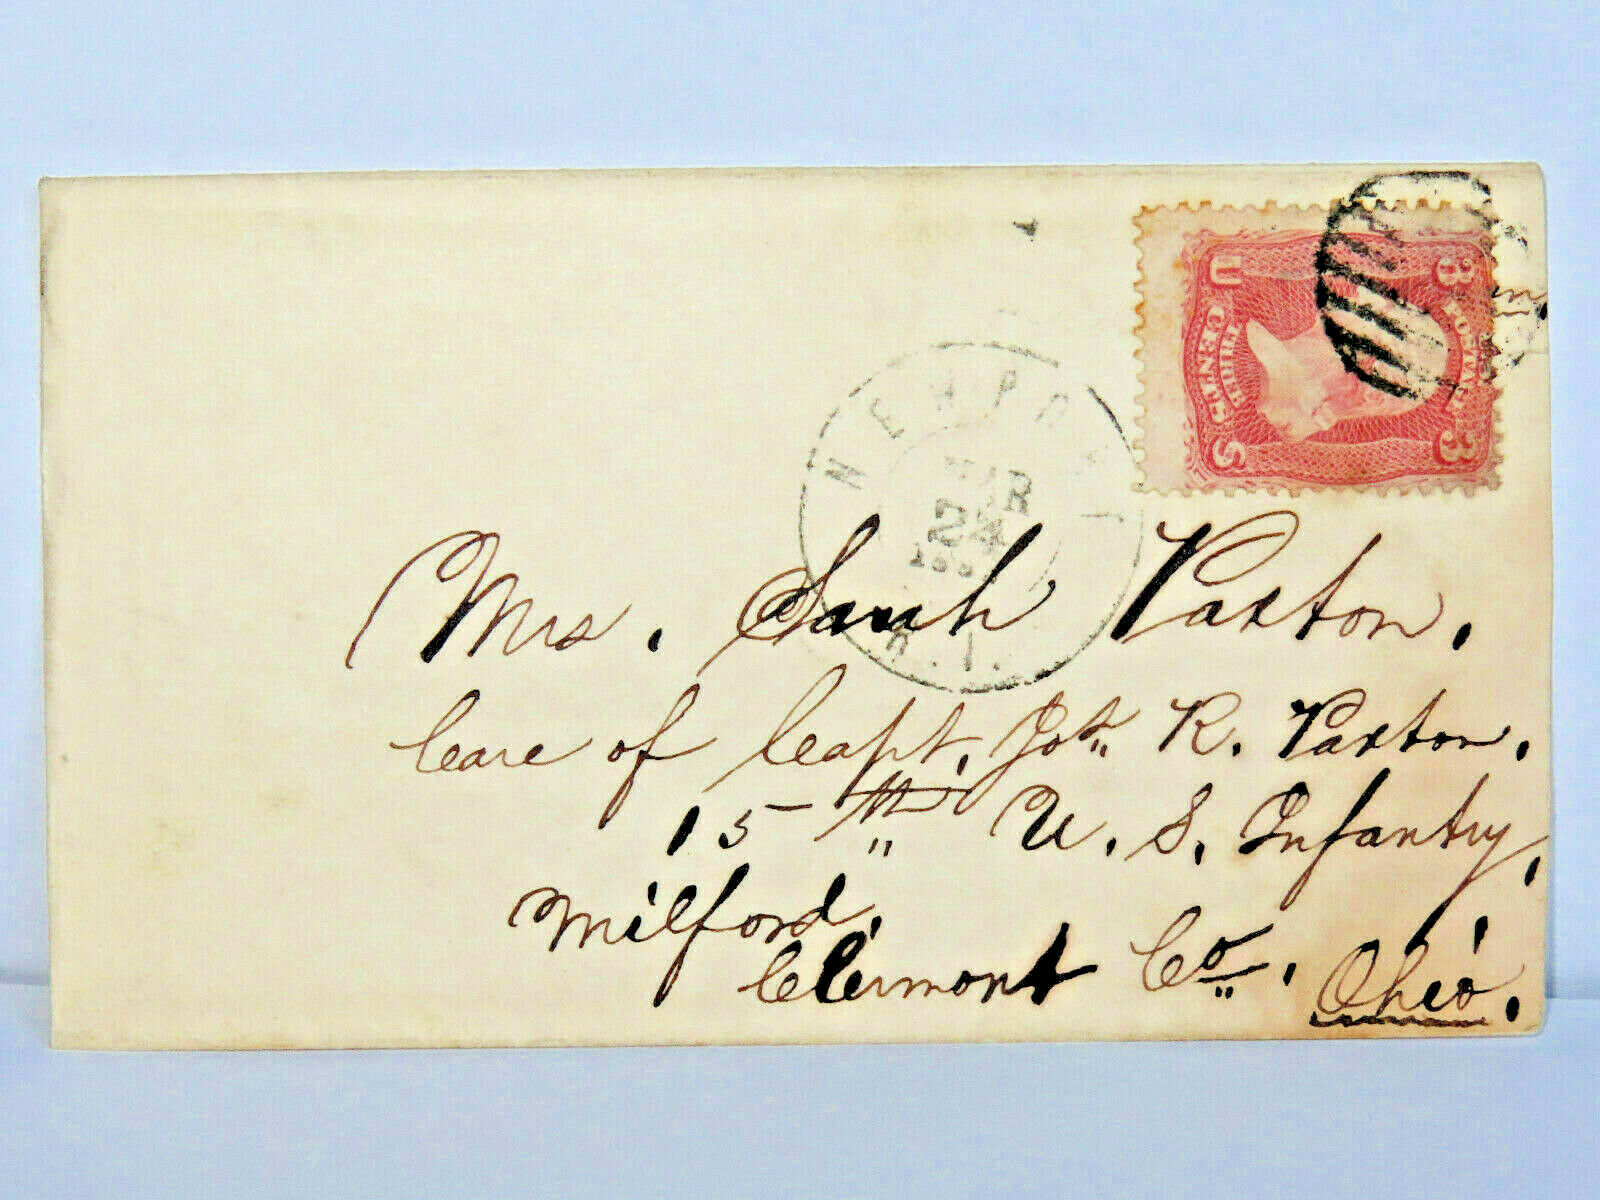 U 3
THREE CENTS POSTAGE
S 3
NEWPORT
MAR
24
R.I.
Mrs. Sarah Paxton.
Care of Capt. Jos. R. Paxton.
15th U. S. Infantry,
Milford,
Clermont Co. Ohio.